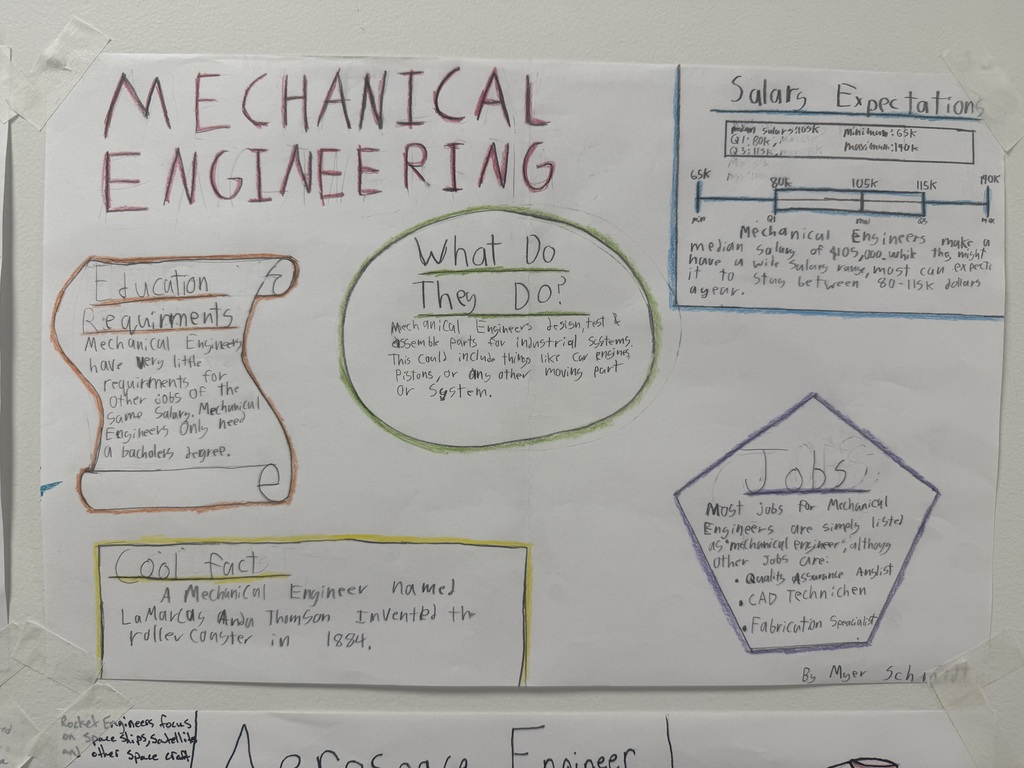 MECHANICAL
ENGINEERING
Salary Expectations
median salary:105K
Q1:80K,
Q3:115K,
minimum:65K
maximum:190K
65K 80K 105K 115K 190K
min Q1 med Q3 max
Mechanical Engineers make a
median salary of $105,000, while they might
have a wide salary range, most can expect
it to stay between 80-115K dollars
a year.
What Do
They Do?
Mechanical Engineers design, test &
assemble parts for industrial systems.
This could include things like car engines
Pistons, or any other moving part
or system.
Education
Requirments
Mechanical Engineers
have very little
requirments for
other jobs of the
same salary. Mechanical
Engineers only need
a bacholers degree.
Jobs
Most jobs for Mechanical
Engineers are simply listed
as "mechanical engineer", althoug
other jobs are:
• Quality Assurance Anylist
• CAD Technichen
• Fabrication Specialist
Cool fact
A Mechanical Engineer named
LaMarcus Thomson Invented the
roller coaster in 1884.
By Myer
Rocket Engineers focus
on Space Ships, Satellite
and other Space craft
Aerospace Engineer